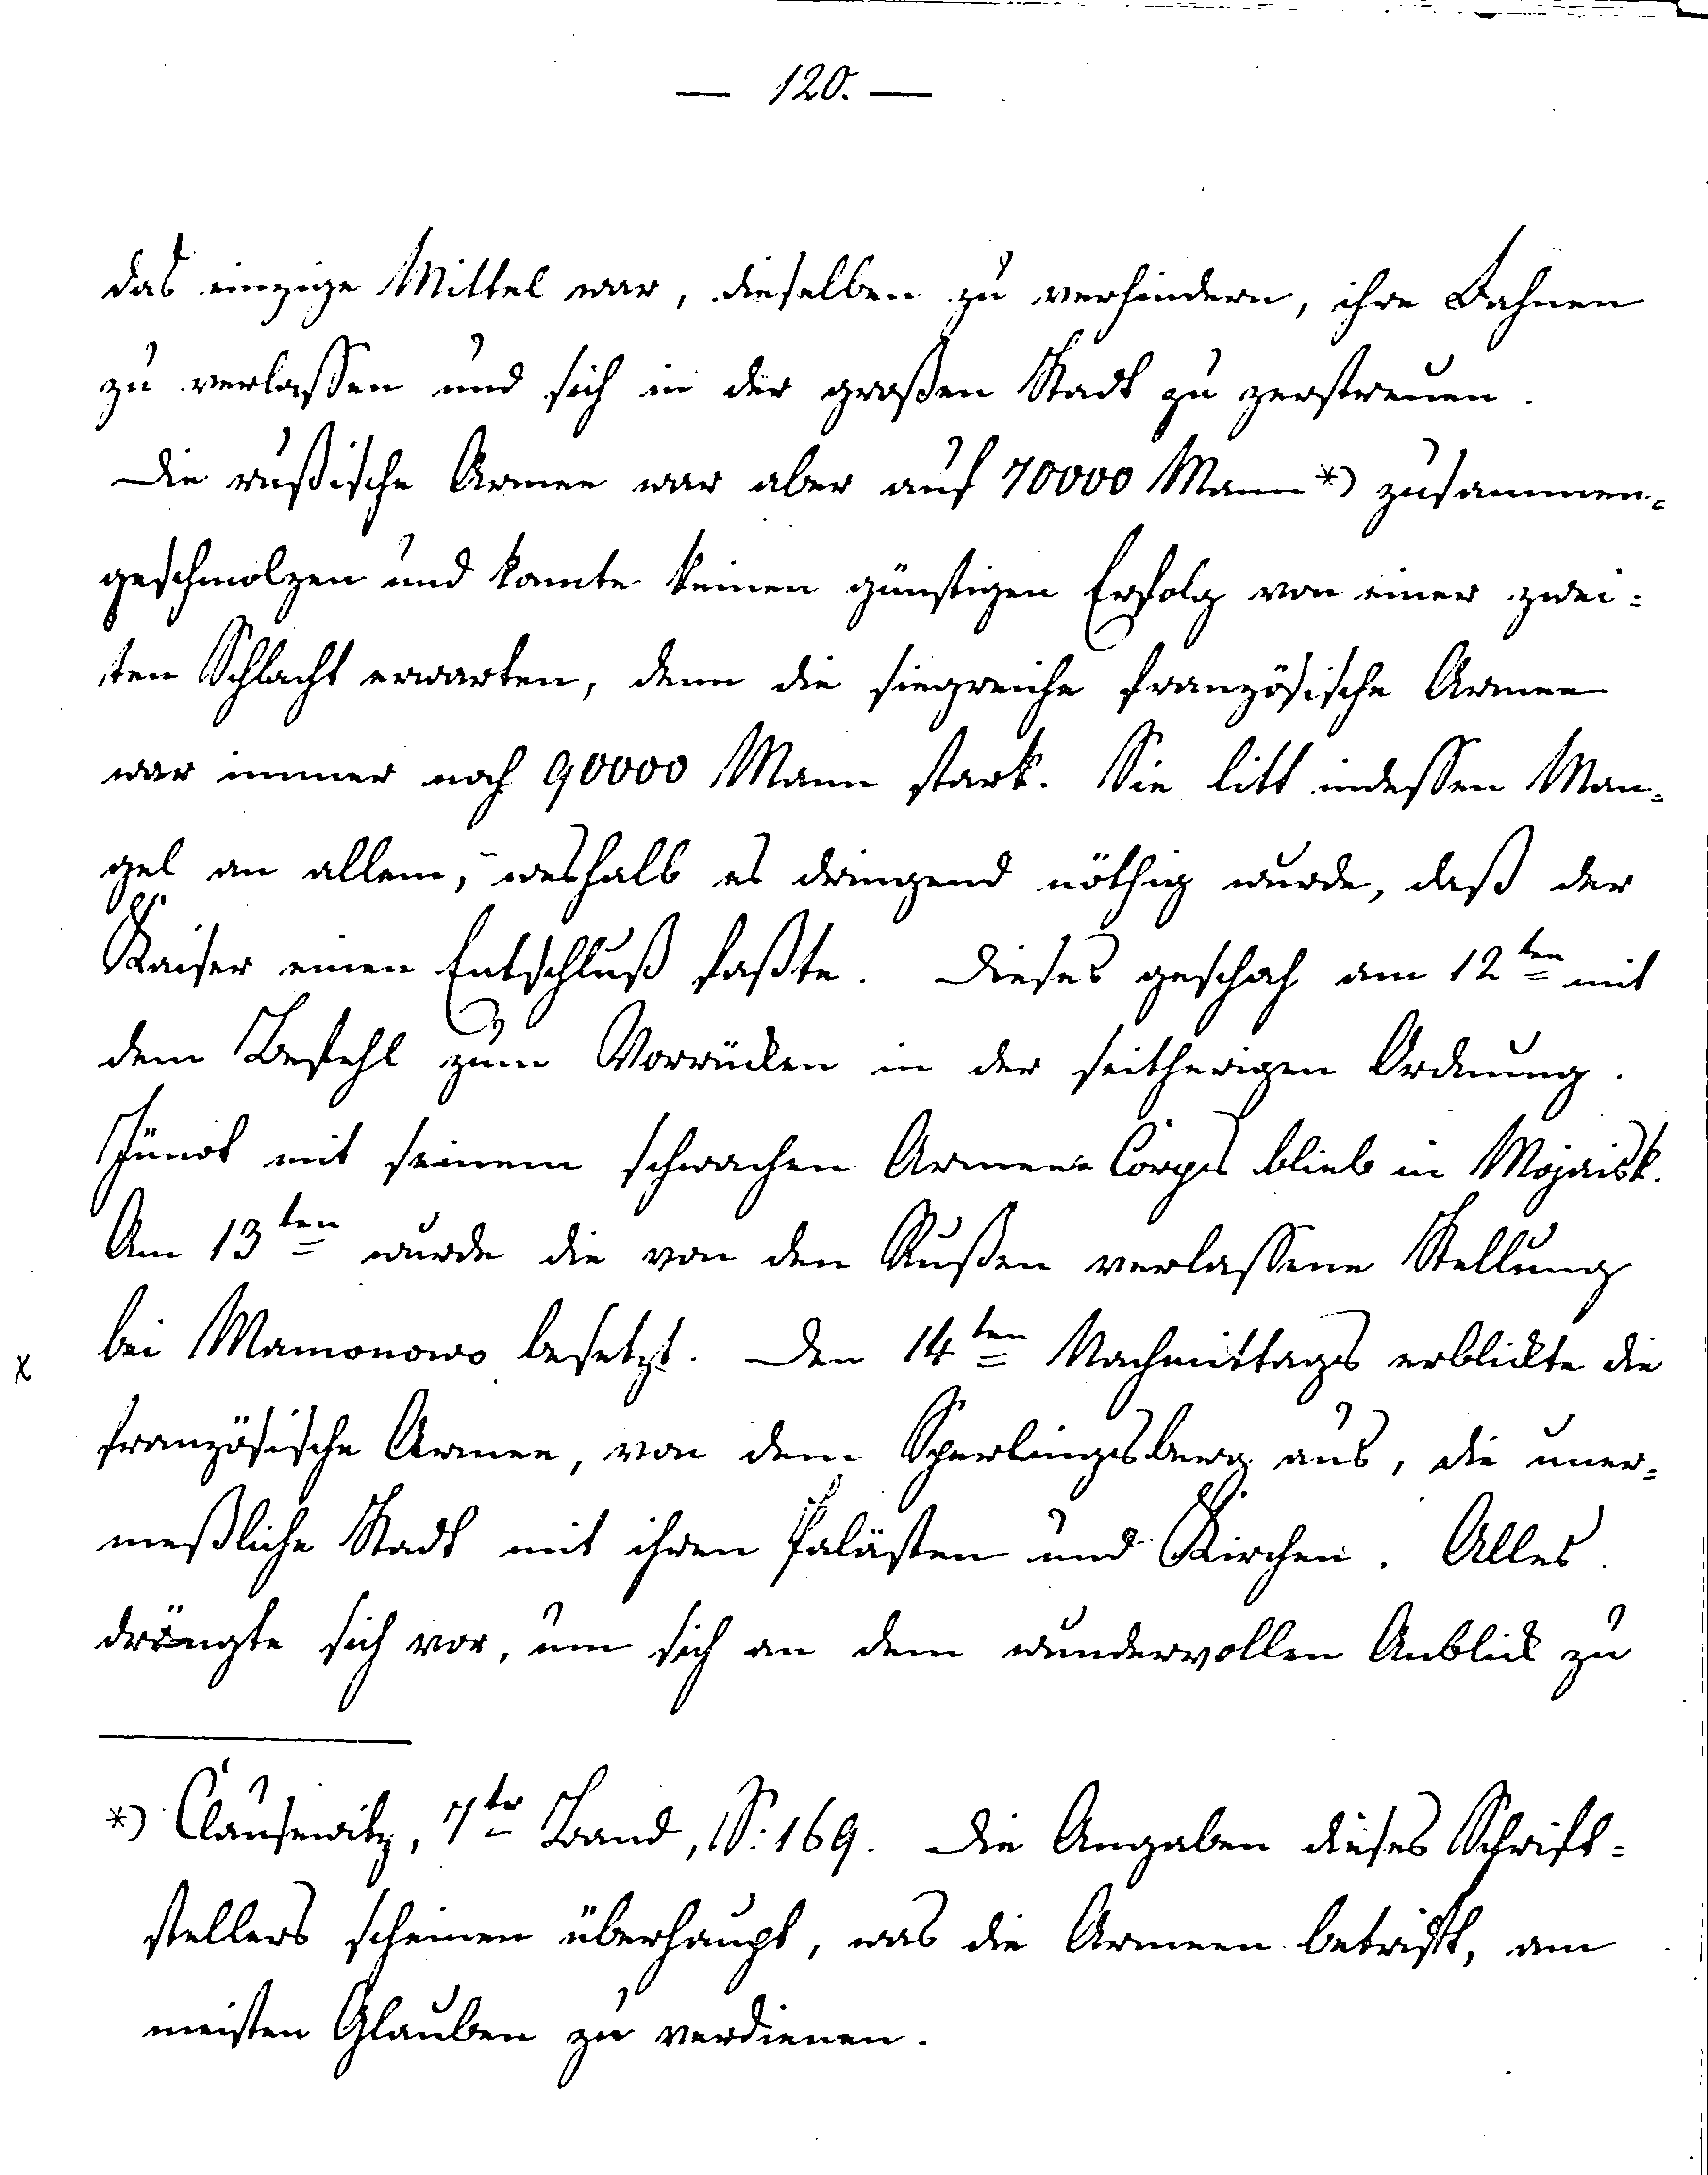 — 120. —
das einzige Mittel war, dieselben zu verhindern, ihre Fahnen
zu verlassen und sich in der großen Stadt zu zerstreuen.
Die rußische Armee war aber auf 70000 Mann *) zusammen-
geschmolzen und konnte keinen günstigen Erfolg von einer zwei-
ten Schlacht erwarten, denn die siegreiche französische Armee
war immer noch 90000 Mann stark. Sie litt indessen Man-
gel an allem, weshalb es dringend nöthig wurde, daß der
Kaiser einen Entschluß faßte. Dieses geschah am 12ten mit
dem Befehl zum Vorrücken in der seitherigen Ordnung.
Junot mit seinem schwachen Armee-Corps blieb in Mojaisk.
Am 13ten wurde die von den Rußen verlassene Stellung
x bei Mamonowo besetzt. Den 14ten Nachmittags erblickte die
französische Armee, von dem Sperlingsberg aus, die uner-
meßliche Stadt mit ihren Palästen und Kirchen. Alles
drängte sich vor, um sich an dem wundervollen Anblick zu
*) Clausewitz, 7tr Band, S: 169. Die Angaben dieses Schrift-
stellers scheinen überhaupt, was die Armeen betrifft, am
meisten Glauben zu verdienen.